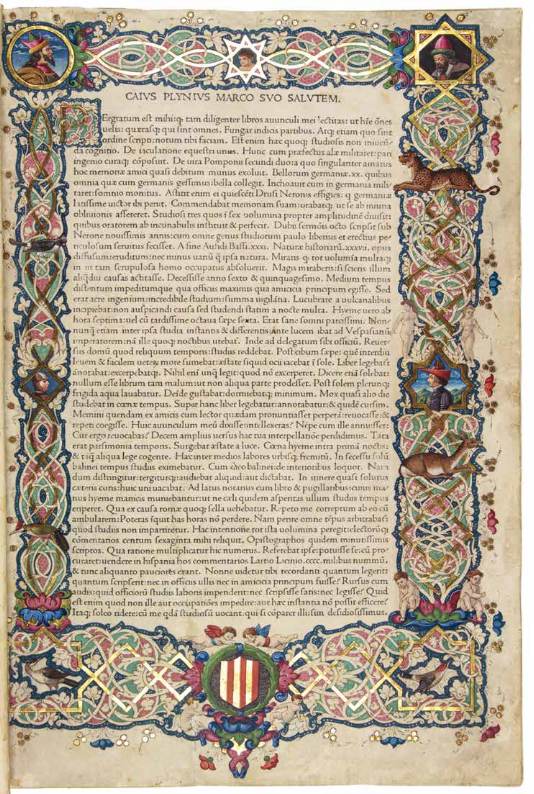 CAIVS PLYNIVS MARCO SVO SALVTEM.
PErgratum est mihi q tam diligenter libros auunculi mei lectitas: ut hře oēs
uelis: quæras qui sint omnes. Fungar indicis partibus. Atq etiam quo sint
ordine scripti notum tibi faciam. Est enim hæc quoq studiosis non iniucū
da cognitio. De iaculatione equestri unus. Hunc cum præfectus alæ militaret: pari
ingenio curaq cōposuit. De uita Pomponii secundi duo: a quo singulariter amatus
hoc memoriæ amici quasi debitum munus exoluit. Bellorum germaniæ .xx. quibus
omnia quæ cum germanis gessimus bella collegit. Inchoauit cum in germania mili
taret: somnio monitus. Astitit enim ei quiescēti Drusi Neronis effigies: q germaniæ
latissime uictor ibi periit. Commendabat memoriam suam: orabatq: ut se ab iniuria
obliuionis assereret. Studiosi tres quos i sex uolumina propter amplitudinē diuisit
quibus oratorem ab incunabulis instituit & perfecit. Dubii sermōis octo scripsit sub
Nerone nouissimis annis: cum omne genus studiorum paulo liberius et erectius pe
riculosum seruitus fecisset. A fine Aufidii Bassi .xxxi. Naturæ historiarū .xxxvii. opus
diffusum: eruditum: nec minus uariū q̄ ipsa natura. Miraris q tot uolumīa multaq
in his tam scrupulosa homo occupatus absoluerit. Magis miraberis: si scieris illum
aliqdiu causas actitasse. Decessisse anno sexto & quinquagesimo. Medium tempus
distentum impeditumque qua officiis maximis qua amicicia principum egisse. Sed
erat acre ingenium: incredibile studium: summa uigilātia. Lucubrare a uulcanalibus
incipiebat: non auspicandi causa sed studendi statim a nocte multa. Hyeme uero ab
hora septima: uel cū tardissime octaua sæpe sexta. Erat sane somni paratissimi. Non
nunq̄ etiam inter ipsa studia instantis & differentis. Ante lucem ibat ad Vespasianū
imperatorem: nā ille quoq noctibus utebat. Inde ad delegatum sibi officiū. Reuer
sus domū quod reliquum temporis: studiis reddebat. Post cibum sæpe: quē interdiu
leuem & facilem ueteꝝ more sumebat: æstate siquid ocii iacebat i sole. Liber legebat
ānotabat: excerpebatq. Nihil enī unq̄ legit: quod nō excerperet. Dicere etiā solebat
nullum esse librum tam malum: ut non aliqua parte prodesset. Post solem plerunq
frigida aqua lauabatur. Deide gustabat: dormiebatq minimum. Mox quasi alio die
studebat in cœnæ tempus. Super hanc liber legebatur: annotabatur: & quidē cursim.
Memini quendam ex amicis cum lector q̄dam pronuntiasset perperā: reuocasse: &
repeti coegisse. Huic auunculum meū dixisse: intellexeras? Nēpe cum ille annuisset:
Cur ergo reuocabas? Decem amplius uersus hac tua interpellatiōe perdidimus. Tāta
erat parsimonia temporis. Surgebat æstate a luce. Cœna hyeme intra primā noctis:
& tāq̄ aliqua lege cogente. Hæc inter medios labores urbisq fremitū. In secessu solū
balinei tempus studiis eximebatur. Cum dico balinei: de interioribus loquor. Nam
dum distringitur: tergiturq: audiebat aliquid: aut dictabat. In itinere quasi solutus
cæteris curis: huic uni uacabat. Ad latus notarius cum libro & pugillaribus: cuius ma
nus hyeme manicis muniebantur: ut ne cæli quidem asperitas ullum studiis tempus
eriperet. Qua ex causa romæ quoq sella uehebatur. Repeto me correptum ab eo cū
ambularem: Poteras īquit has horas nō perdere. Nam perire omne tēpus arbitrabat
quod studiis non impartiretur. Hac intentione tot ista uolumina peregit: electorūq
cōmentarios centum sexaginta mihi reliquit. Opistographos quidem minutissime
scriptos. Qua ratione multiplicatur hic numerus. Referebat ipse: potuisse se: cū pro
curaret: uendere in hispania hos commentarios Lartio Licinio .cccc. milibus nummū.
& tunc aliquanto pauciores erant. Nonne uidetur tibi recordanti quantum legerit
quantum scripserit: nec in officiis ullis nec in amicicia principum fuisse? Rursus cum
audis: quid studiis laboris impenderit: nec scripsisse satis: nec legisse? Quid
est enim quod non illæ aut occupatiōes impedire: aut hæc instantia nō possit efficere?
Itaq soleo ridere: cū me qdā studiosū uocant. qui si cōparer illi: sum desidiosissimus.